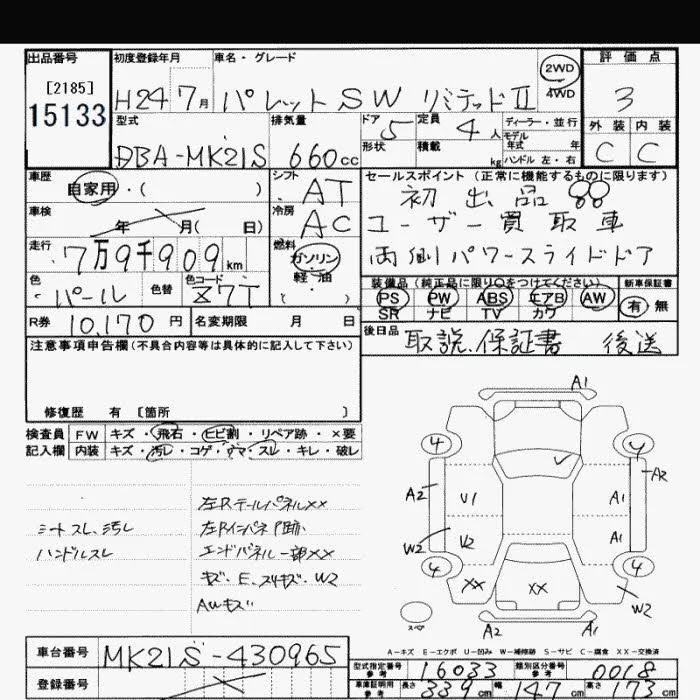 出品番号 初度登録年月 車名・グレード 評価点
[2185] 2WD
15133 H24 7月 パレットSW リミテッドⅡ 4WD 3
型式 排気量 ドア 5 定員 4人 ディーラー・並行 外装 内装
形状 積載 kg モデル年式 年
DBA-MK21S 660cc ハンドル 左・右 C C
車歴 自家用・( ) シフト AT セールスポイント(正常に機能するものに限ります)
初出品
車検 年 月( 日) 冷房 AC ユーザー買取車
走行 7万9千909km 燃料 ガソリン・軽・油 ( ) 両側パワースライドドア
色 パール 色替 色コード Z7T 装備品(純正品に限り○をつけてください) 新車保証書
PS PW ABS エアB AW 有 無
SR ナビ TV カワ
R券 10,170円 名変期限 月 日 後日品 取説、保証書 後送
注意事項申告欄(不具合内容等は具体的に記入して下さい)
修復歴 有 〔箇所 〕
検査員 FW キズ・飛石・ヒビ割・リペア跡・×要
記入欄 内装 キズ・汚レ・コゲ・ウマ・スレ・キレ・破レ
A1
4
A2
A2 U1 A1
W2 U2 A1
4 4
XX XX W2
スペア A2 A1
左RテールパネルXX
シートスレ、汚レ 左Rインパネ P跡
ハンドルスレ エンドパネル一部XX
キズ、E、スリキズ、W2
AWキズ
A-キズ E-エクボ U-凹み W-補修跡 S-サビ C-腐食 XX-交換済
車台番号 MK21S-430965
型式指定番号 参考 16033 類別区分番号 参考 0018
登録番号 車庫証明用 参考 長さ 339cm 幅 147cm 高さ 173cm